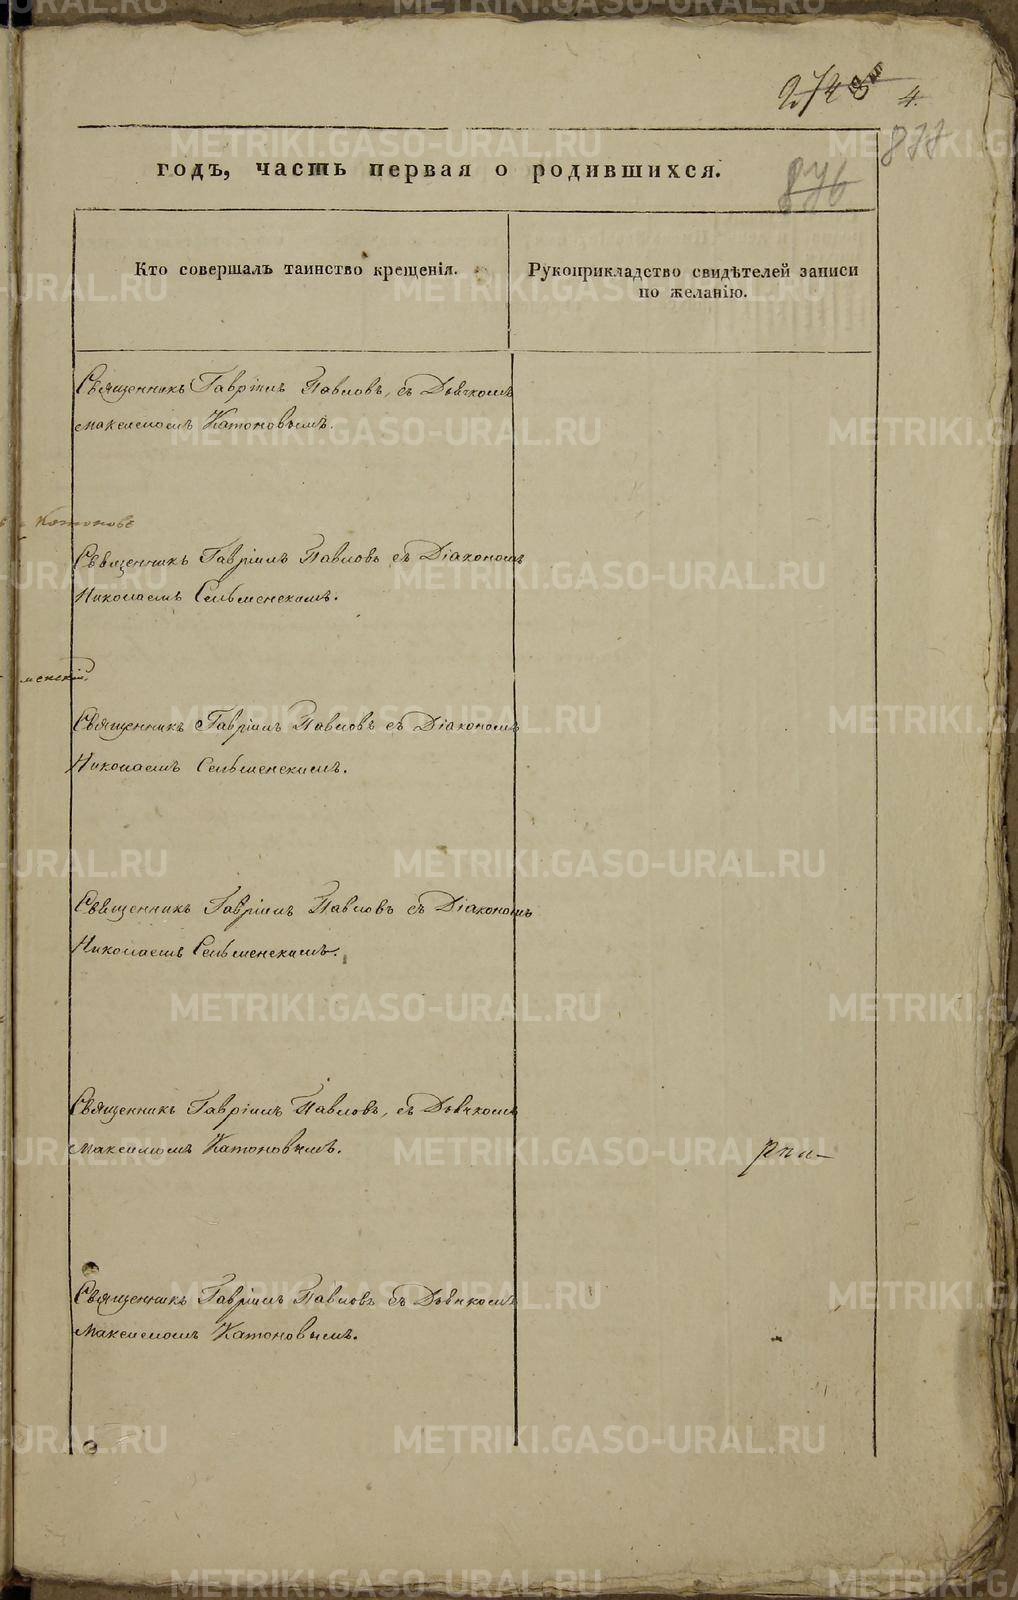 4.
877
876
годъ, часть первая о родившихся.
Кто совершалъ таинство крещенія.
Рукоприкладство свидѣтелей записи
по желанію.
Священникъ Гавріилъ Павловъ, съ Дьячкомъ
Максимомъ Катоновымъ.
Священникъ Гавріилъ Павловъ съ Діакономъ
Николаемъ Сельменскимъ.
менскій.
Священникъ Гавріилъ Павловъ съ Діакономъ
Николаемъ Сельменскимъ.
Священникъ Гавріилъ Павловъ съ Діакономъ
Николаемъ Сельменскимъ.
Священникъ Гавріилъ Павловъ, съ Дьячкомъ
Максимомъ Катоновымъ.
Священникъ Гавріилъ Павловъ съ Дьячкомъ
Максимомъ Катоновымъ.
METRIKI.GASO-URAL.RU